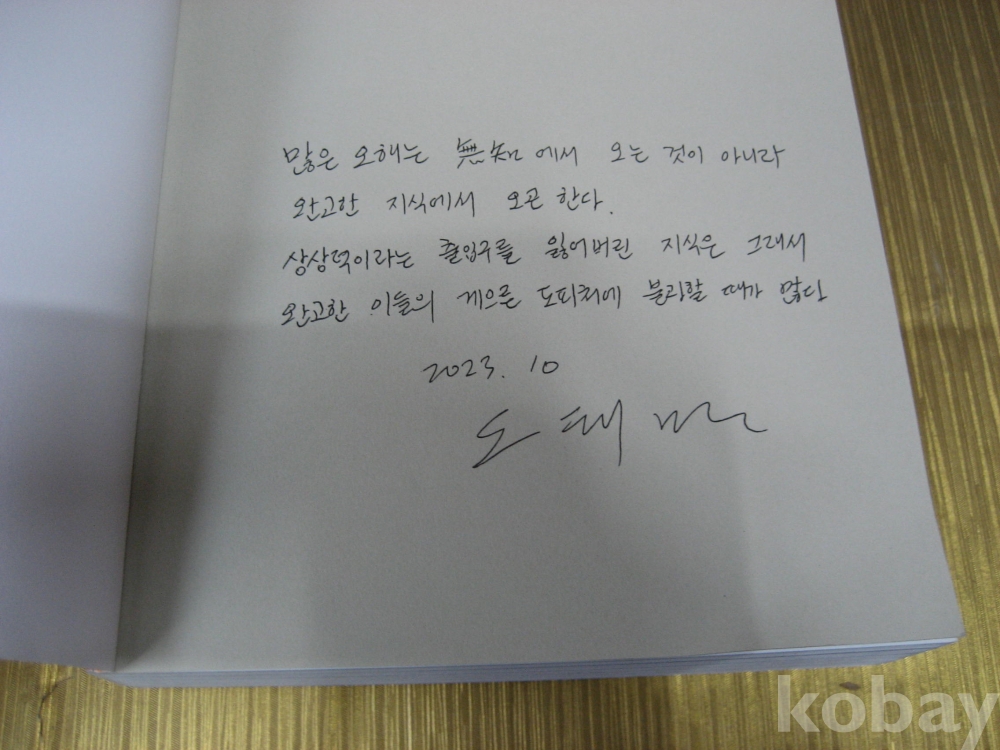 많은 오해는 無知에서 오는 것이 아니라
완고한 지식에서 오곤 한다.
상상력이라는 출입구를 잃어버린 지식은 그래서
완고한 이들의 게으른 도피처에 불과할 때가 많다
2023. 10
도태
kobay